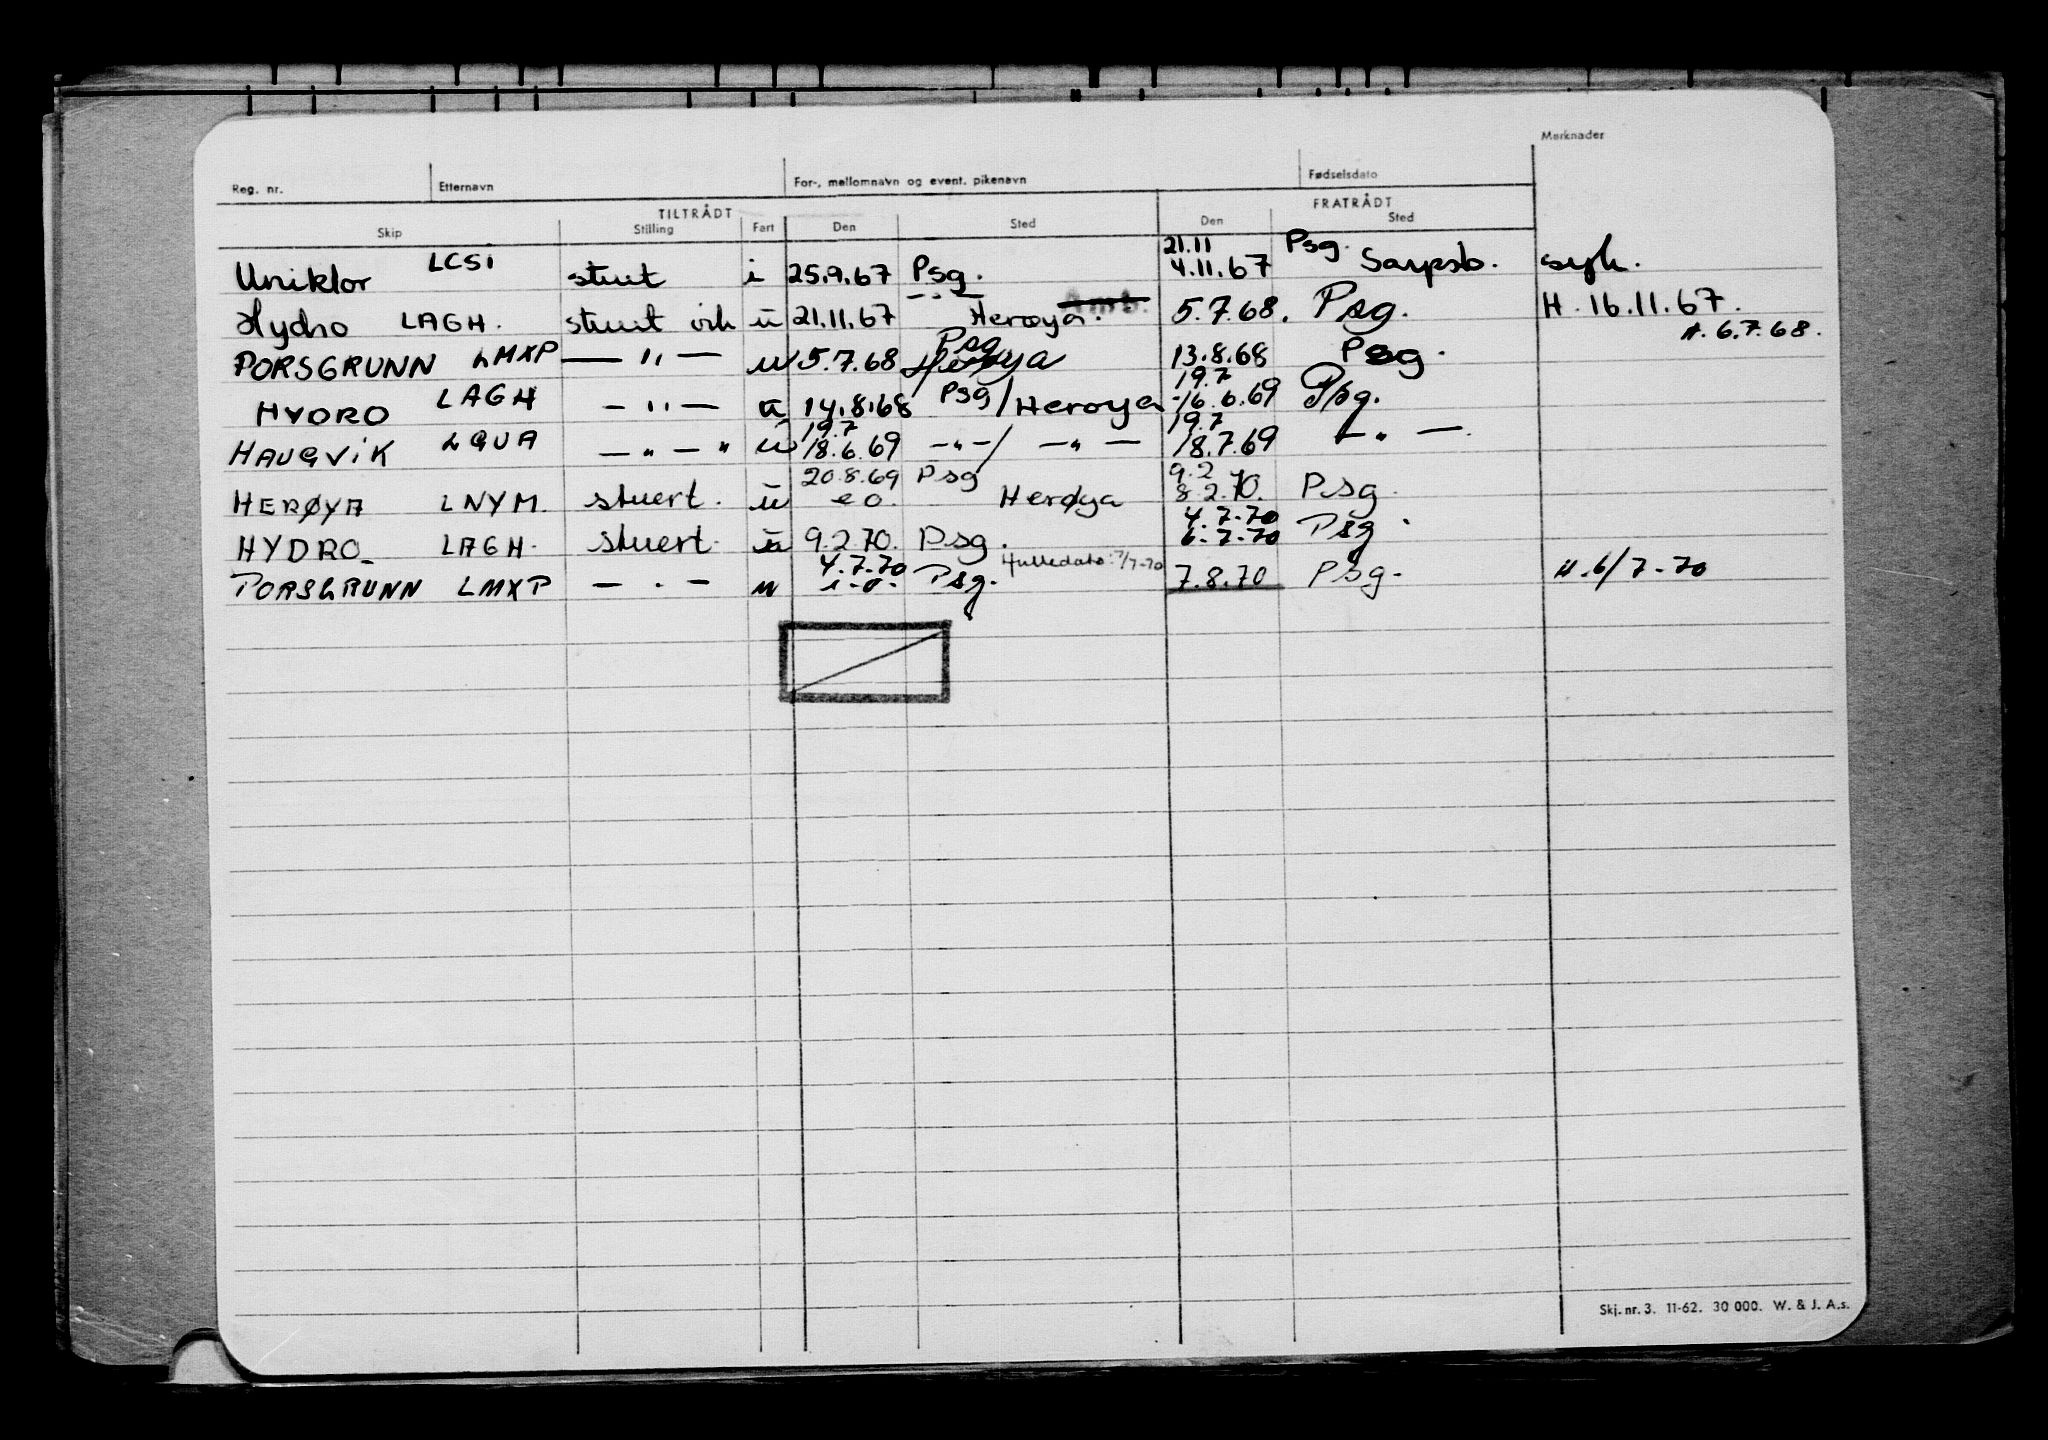 Merknader
Reg. nr. Etternavn For-, mellomnavn og event. pikenavn Fødselsdato
TILTRÅDT FRATRÅDT
Skip Stilling Fart Den Sted Den Sted
21.11 Psg.
Uniklor LCSI stuert i 25.9.67 Psg. 4.11.67 Sarpsb. syk.
Hydro LAGH. stuert vik u 21.11.67 — " — Herøya. 5.7.68. Psg. H. 16.11.67.
H. 6.7.68.
Psg
PORSGRUNN LMXP — " — u 5.7.68 Herøya 13.8.68 Psg.
19.7
HYDRO LAGH — " — u 14.8.68 Psg / Herøya 16.6.69 Psg.
19.7 19.7
HAUGVIK LQUA — " — " u 18.6.69 — " — / — " — 18.7.69 — " —.
20.8.69 Psg 9.2
HERØYA LNYM. stuert. u e o. Herøya 8.2.70. Psg.
4.7.70
HYDRO LAGH. stuert. u 9.2.70. Psg. 6.7.70 Psg
4.7.70 Hulledato: 7/7-70
PORSGRUNN LMXP — . — u i.o. Psg. 7.8.70 Psg. H. 6/7-70
Skj. nr. 3. 11-62. 30 000. W. & J. A.s.